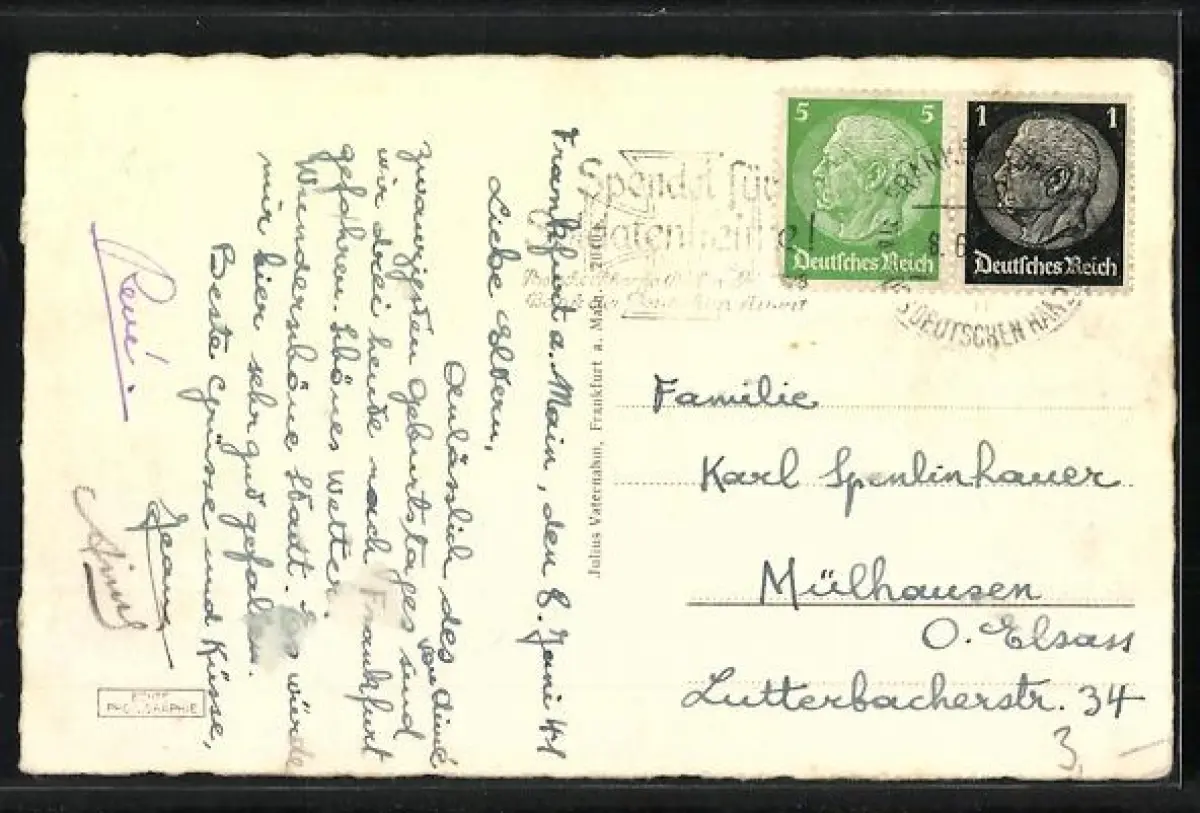 Frankfurt a. Main, den 8. Juni 41
Liebe Eltern,
Anlässlich des
zwanzigsten Geburtstages von Aimé sind
wir drei heute nach Frankfurt
gefahren. Schönes Wetter.
Wunderschöne Stadt. Es würde
mir hier sehr gut gefallen.
Beste Grüsse und Küsse,
Jean
René
Aimé
PHOTOGRAPHIE
Julius Vaternahm, Frankfurt a. Main
Spendet für
5 5
Deutsches Reich
1 1
Deutsches Reich
8.6
Familie
Karl Spenlinhauer
Mülhausen
O. Elsass
Lutterbacherstr. 34
3,